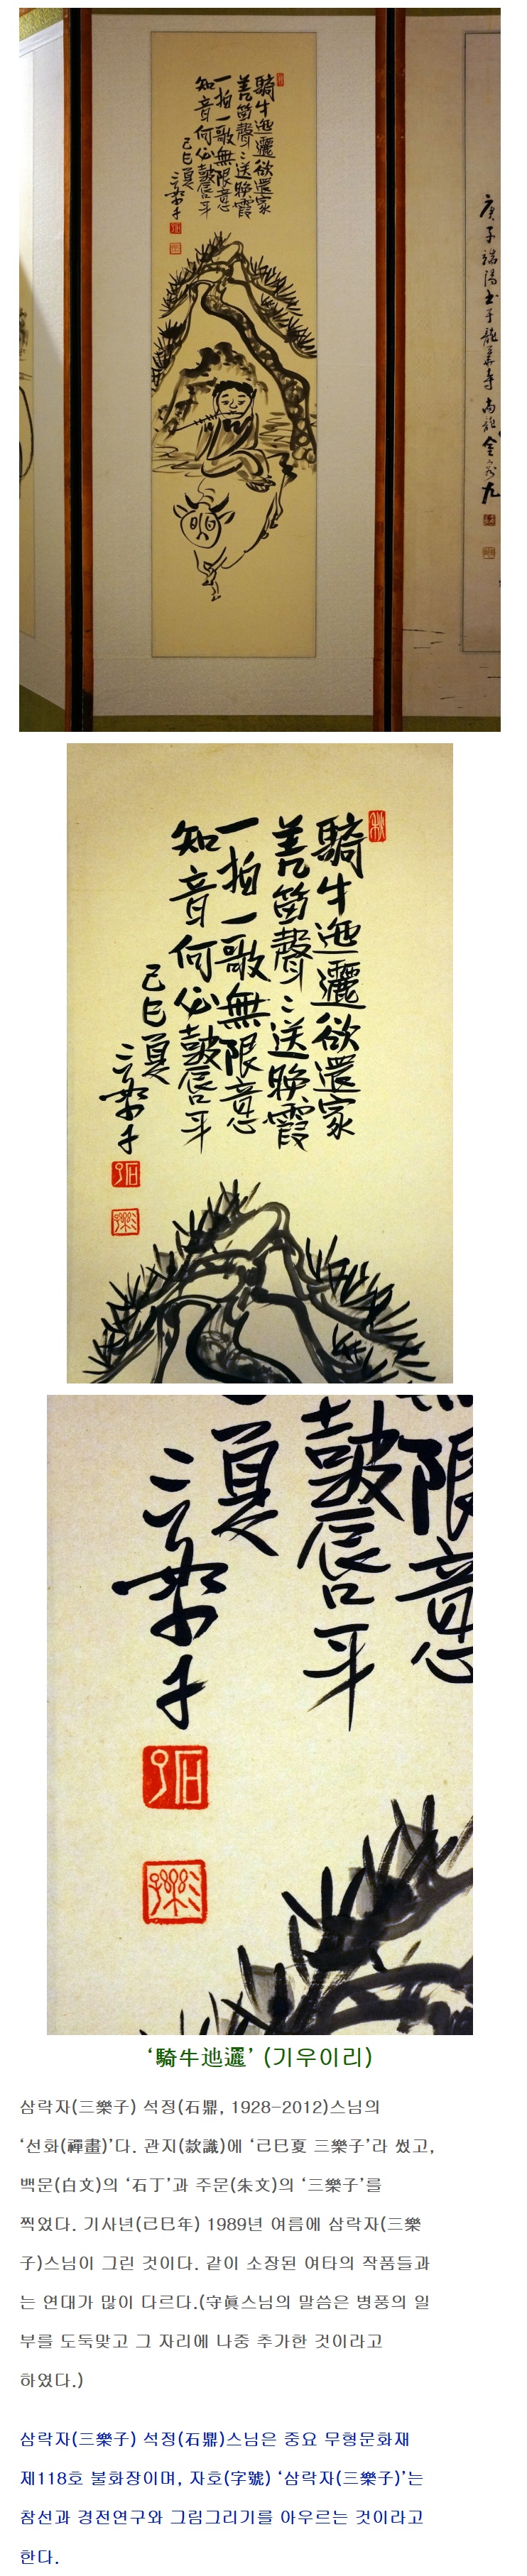 騎牛迤邐欲還家
羌笛聲〻送晩霞
一拍一歌無限意
知音何必皷唇牙
己巳夏
三樂子
庚子端陽
金
九
騎牛迤邐欲還家
羌笛聲〻送晩霞
一拍一歌無限意
知音何必皷唇牙
己巳夏
三樂子
石丁
三樂子
限意
皷唇牙
夏
三樂子
石丁
三樂子
‘騎牛迆邐’ (기우이리)
삼락자(三樂子) 석정(石鼎, 1928-2012)스님의
‘선화(禪畫)’다. 관지(款識)에 ‘己巳夏 三樂子’라 썼고,
백문(白文)의 ‘石丁’과 주문(朱文)의 ‘三樂子’를
찍었다. 기사년(己巳年) 1989년 여름에 삼락자(三樂
子)스님이 그린 것이다. 같이 소장된 여타의 작품들과
는 연대가 많이 다르다.(守眞스님의 말씀은 병풍의 일
부를 도둑맞고 그 자리에 나중 추가한 것이라고
하였다.)
삼락자(三樂子) 석정(石鼎)스님은 중요 무형문화재
제118호 불화장이며, 자호(字號) ‘삼락자(三樂子)’는
참선과 경전연구와 그림그리기를 아우르는 것이라고
한다.